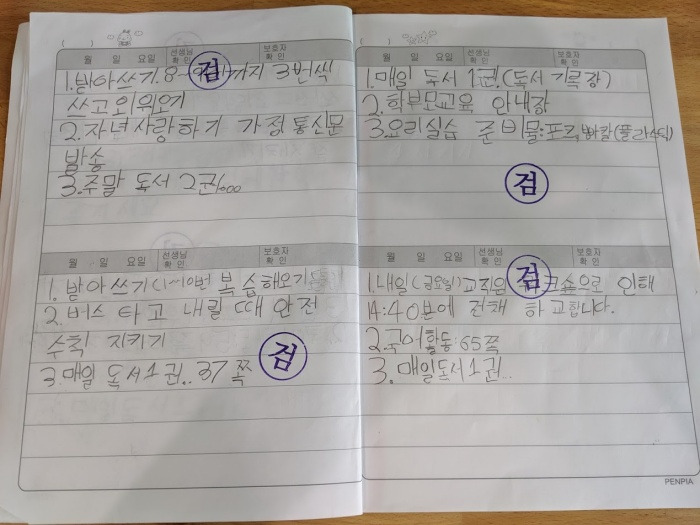 ( )
월 일 요일 선생님 확인 보호자 확인
검
1. 받아쓰기 8 까지 3번씩
쓰고 외워오기
2. 자녀사랑하기 가정통신문
발송
3. 주말 독서 2권
월 일 요일 선생님 확인 보호자 확인
1. 받아쓰기(1~10번 복습해오기
2. 버스 타고 내릴 때 안전
수칙 지키기
검
3. 매일 독서 1권.. 37쪽
( )
월 일 요일 선생님 확인 보호자 확인
1. 매일 독서 1권.(독서 기록장)
2. 학부모교육 안내장
3. 요리실습 준비물:포크,빠칼(플라스틱)
검
월 일 요일 선생님 확인 보호자 확인
검
1. 내일(금요일) 교직원 크숍으로 인해
14:40분에 전체 하교합니다.
2. 국어활동:65쪽
3. 매일독서1권...
PENPIA